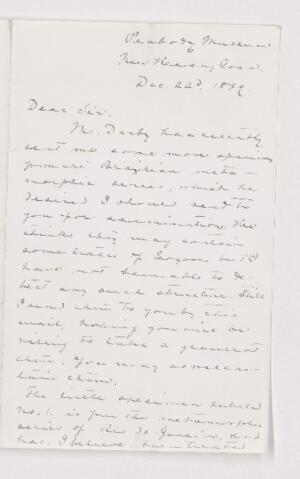 Peabody Museum
New Haven, Conn.
Dec. 22d, 1879.
Dear Sir.
Mr. Derby has recently
sent me some more specimens
from the Brazilian meta-
morphic series, which he
desired I should send to
you for examination. He
thinks they may contain
some traces of Eozoon but I
have not been able to de-
tect any such structure. Still
I send them to you by this
mail, hoping you will be
willing to take a glance at
them. You may as well re-
tain them.
The little specimen labeled
no. 1. is from the metamorphic
series of Rio de Janeiro, and
has, I believe, been treated